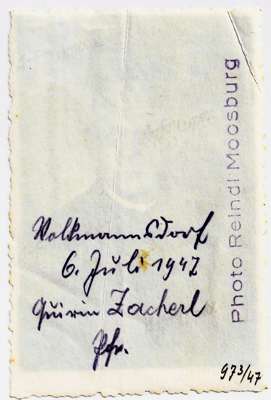 Volkmannsdorf
6. Juli 1947
Quirin Zacherl
Pfr.
Photo Reindl Moosburg
973/47